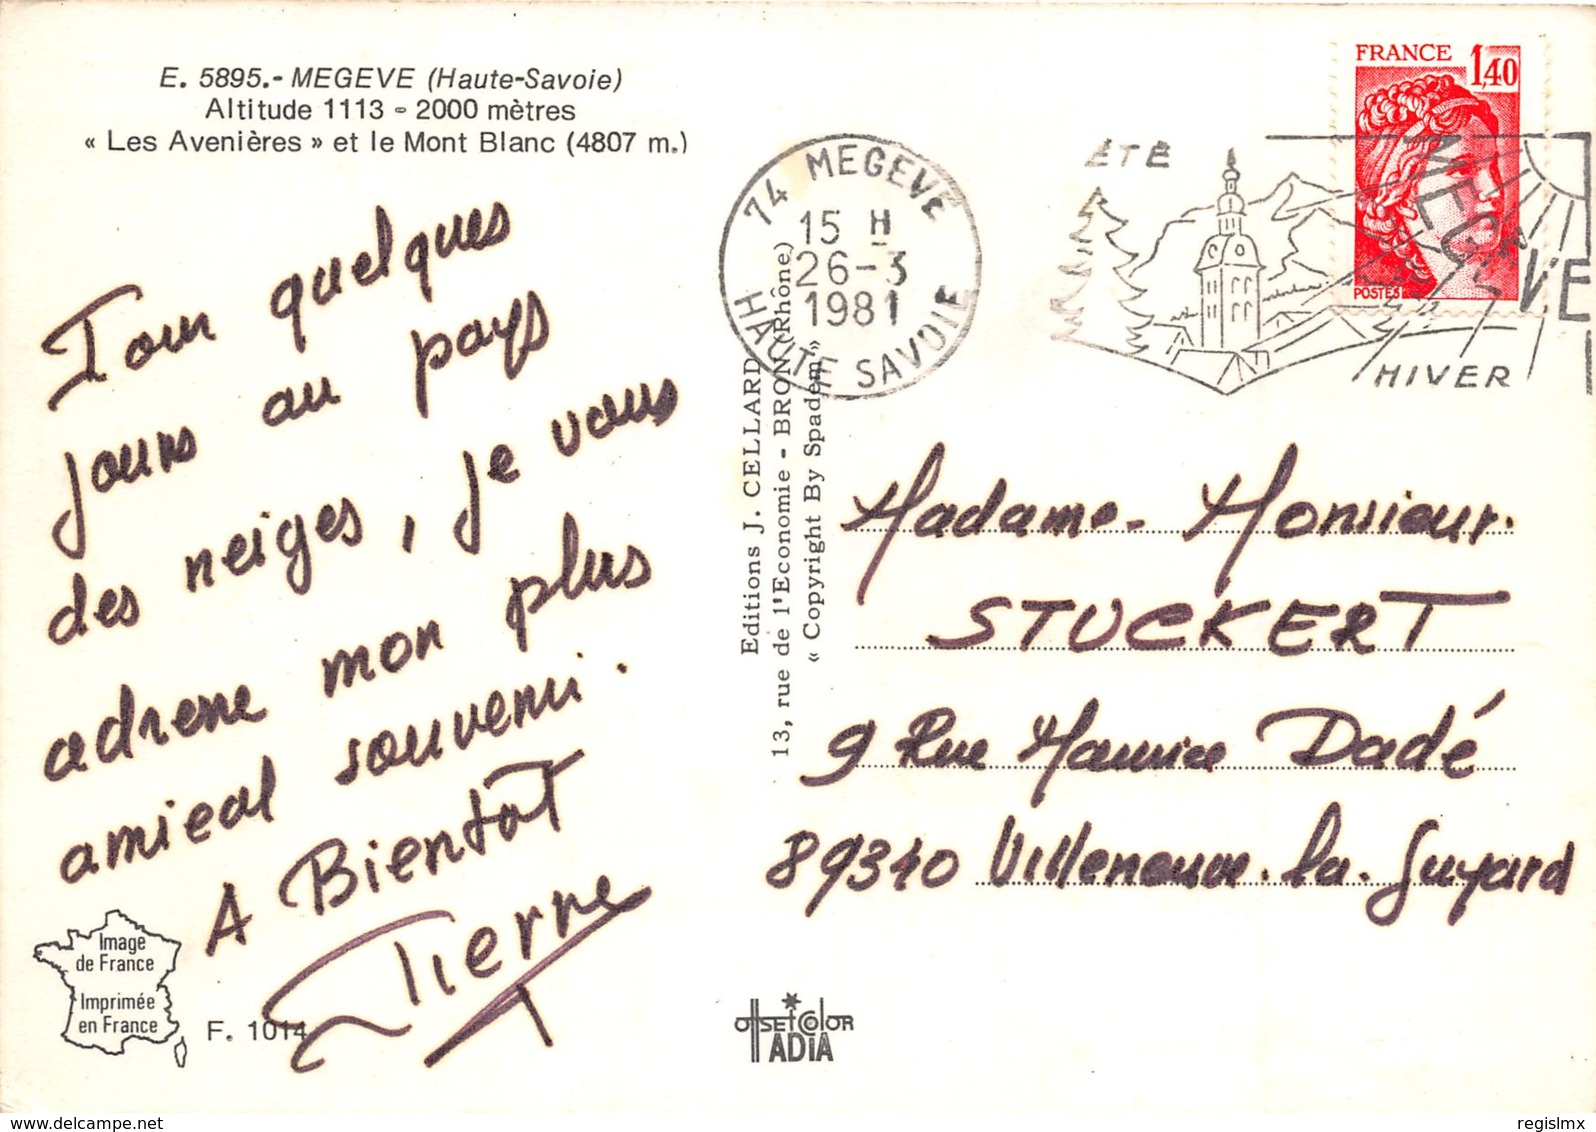 E. 5895.- MEGEVE (Haute-Savoie)
Altitude 1113 - 2000 mètres
« Les Avenières » et le Mont Blanc (4807 m.)
Pour quelques
jours au pays
des neiges, je vous
adresse mon plus
amical souvenir.
A Bientôt
Pierre
Image
de France
Imprimée
en France
F. 1014
Editions J. CELLARD
13, rue de l'Economie - BRON (Rhône)
« Copyright By Spadem »
OffSET COLOR
ADIA
74 MEGEVE
15 H
26-3
1981
HAUTE SAVOIE
ÉTÉ
MEGÈVE
HIVER
FRANCE 1,40
POSTES
Madame - Monsieur.
STUCKERT
9 Rue Maurice Dadé
89340 Villeneuve-la-Guyard
Delcampe.net
regislmx